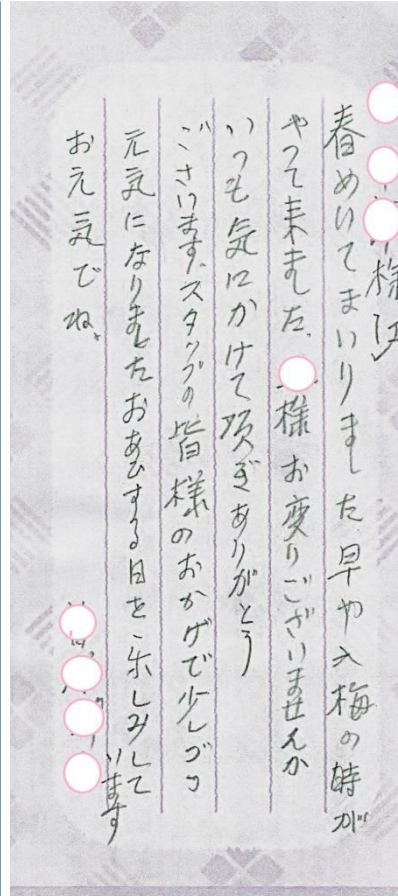 様江
春めいてまいりました早や入梅の時が
やって来ました、様お変りございませんか
いつも気にかけて頂ぎありがとう
ございます、スタッフの皆様のおかげで少しづつ
元気になりましたおあひする日を楽しみして
います
お元気でね、